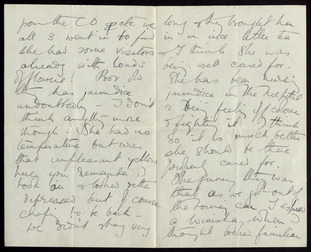 from the CO spoke we
all 3 went in to find
she had some visitors
already with loads
of flowers! Poor
She has jaundice
undoubtedly — I don't
think any more
though. She had no
temperature but was
that unpleasant yellow
hue, you remember. I
took an & other
depressed but of course
to be back —
We didn't stay very
long & they brought her
in a nice little tea
& I think she was
being well cared for.
She has been nursing
jaundice in the Hospital
& been feeling
& fighting it. I think
so it is much better
she should be there
properly cared for.
The funny thing was
that as we got out of
the car I
a whom I
thought looked familiar